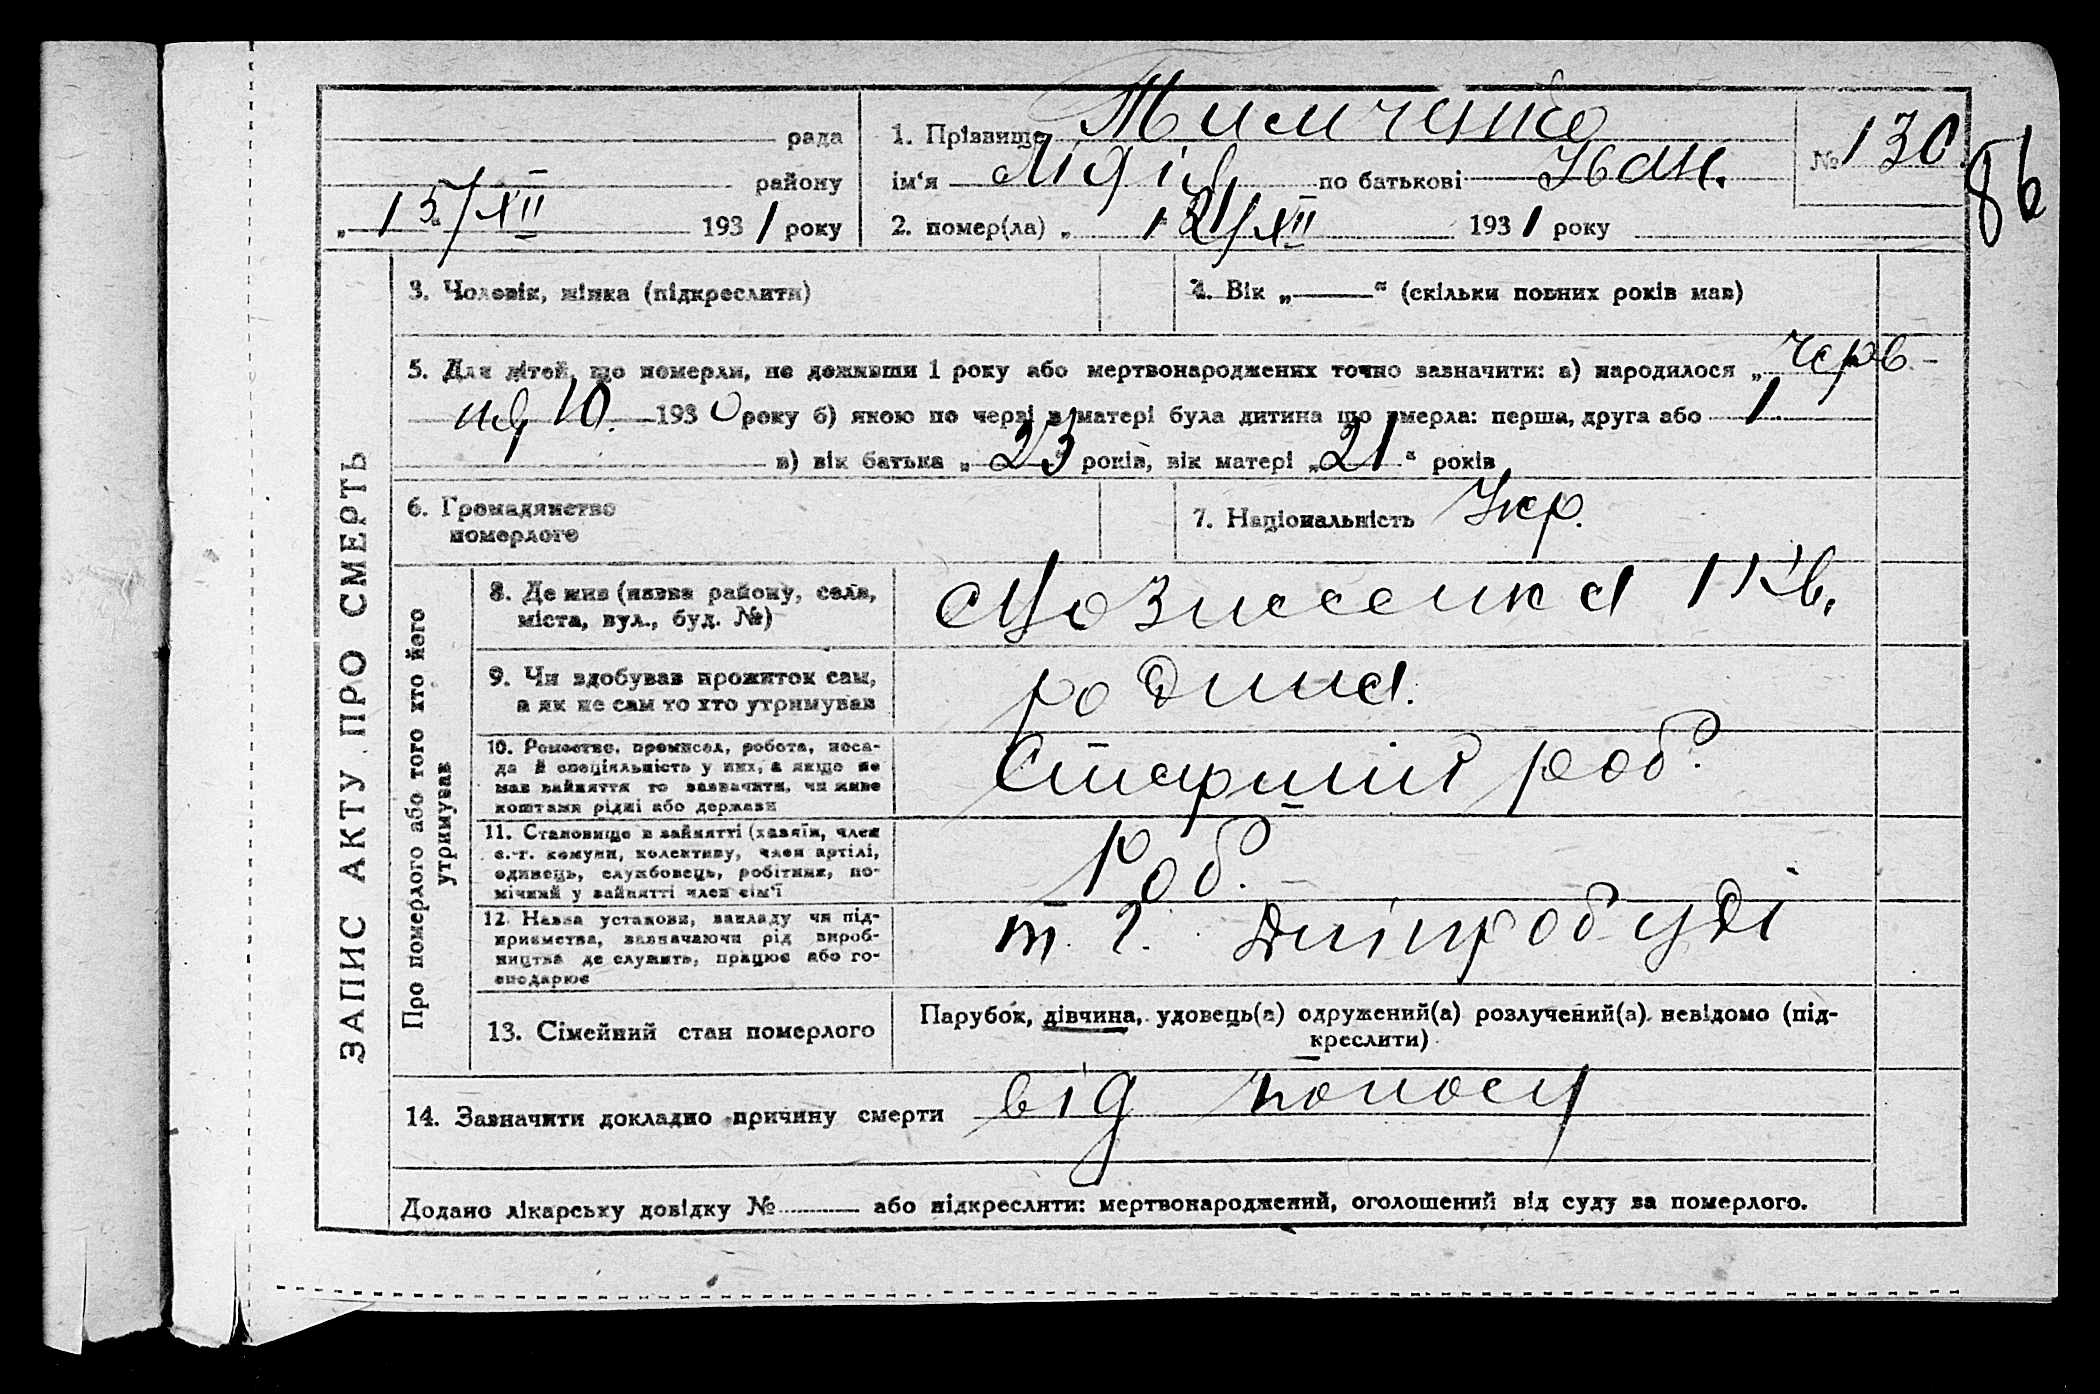 рада
району
„ 15/XII 1931 року
1. Прізвище Тимченко
ім'я Лідія по батькові Іван.
2. помер(ла) „ 1931 року
№ 130
86
ЗАПИС АКТУ ПРО СМЕРТЬ
3. Чоловік, жінка (підкреслити)
4. Вік „——“ (скільки повних років мав)
5. Для дітей, що померли, не доживши 1 року або мертвонароджених точно зазначити: а) народилося „ черв-
ня 10. 1930 року б) якою по черзі в матері була дитина що вмерла: перша, друга або 1
в) вік батька „ 23 “ років, вік матері „ 21 “ років
6. Громадянство
померлого
7. Національність Укр.
Про померлого або того хто його
утримував
8. Де жив (назва району, села,
міста, вул., буд. №)
Вознесенка 1 кв.
9. Чи здобував прожиток сам,
а як не сам то хто утримував
родина.
10. Ремество, промисел, робота, поса-
да й спеціяльність у них, а якщо не
мав зайняття то зазначити, чи живе
коштами рідні або держави
Старший роб.
11. Становище в зайнятті (хазяїн, член
с.-г. комуни, колективу, член артілі,
одинець, службовець, робітник, по-
мічний у зайнятті член сім'ї
Роб.
12. Назва установи, закладу чи під-
приємства, зазначаючи рід вироб-
ництва де служить, працює або го-
сподарює
Дніпробуді
13. Сімейний стан померлого
Парубок, дівчина, удовець(а) одружений(а) розлучений(а) невідомо (під-
креслити)
14. Зазначити докладно причину смерти від поносу
Додано лікарську довідку № або підкреслити: мертвонароджений, оголошений від суду за померлого.